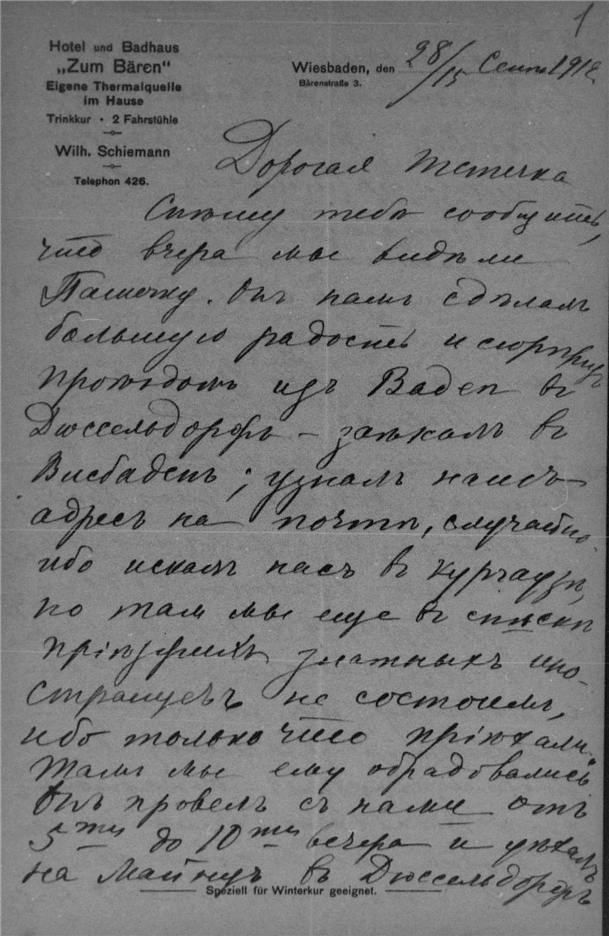 1
Hotel und Badhaus
„Zum Bären"
Eigene Thermalquelle
im Hause
Trinkkur • 2 Fahrstühle
Wilh. Schiemann
Telephon 426.
Wiesbaden, den 28/15 Сент. 1912
Bärenstraße 3.
Дорогая Тетечка
Спѣшу тебѣ сообщить,
что вчера мы видѣли
Пашечку. Онъ намъ сдѣлалъ
большую радость и сюрпризъ
проѣздомъ изъ Baden въ
Дюссельдорфъ – заѣхалъ въ
Висбаденъ; узналъ нашъ
адресъ на почтѣ, случайно
ибо искалъ насъ в кургаузѣ,
но там мы еще в списки
пріѣзжихъ знатныхъ ино-
странцевъ не состоимъ,
ибо только что пріѣхали.
мы ему обрадовались
Онъ провелъ съ нами отъ
5ти до 10ти вечера и уѣхалъ
на Майнцъ в Дюссельдорфъ
Speziell für Winterkur geeignet.